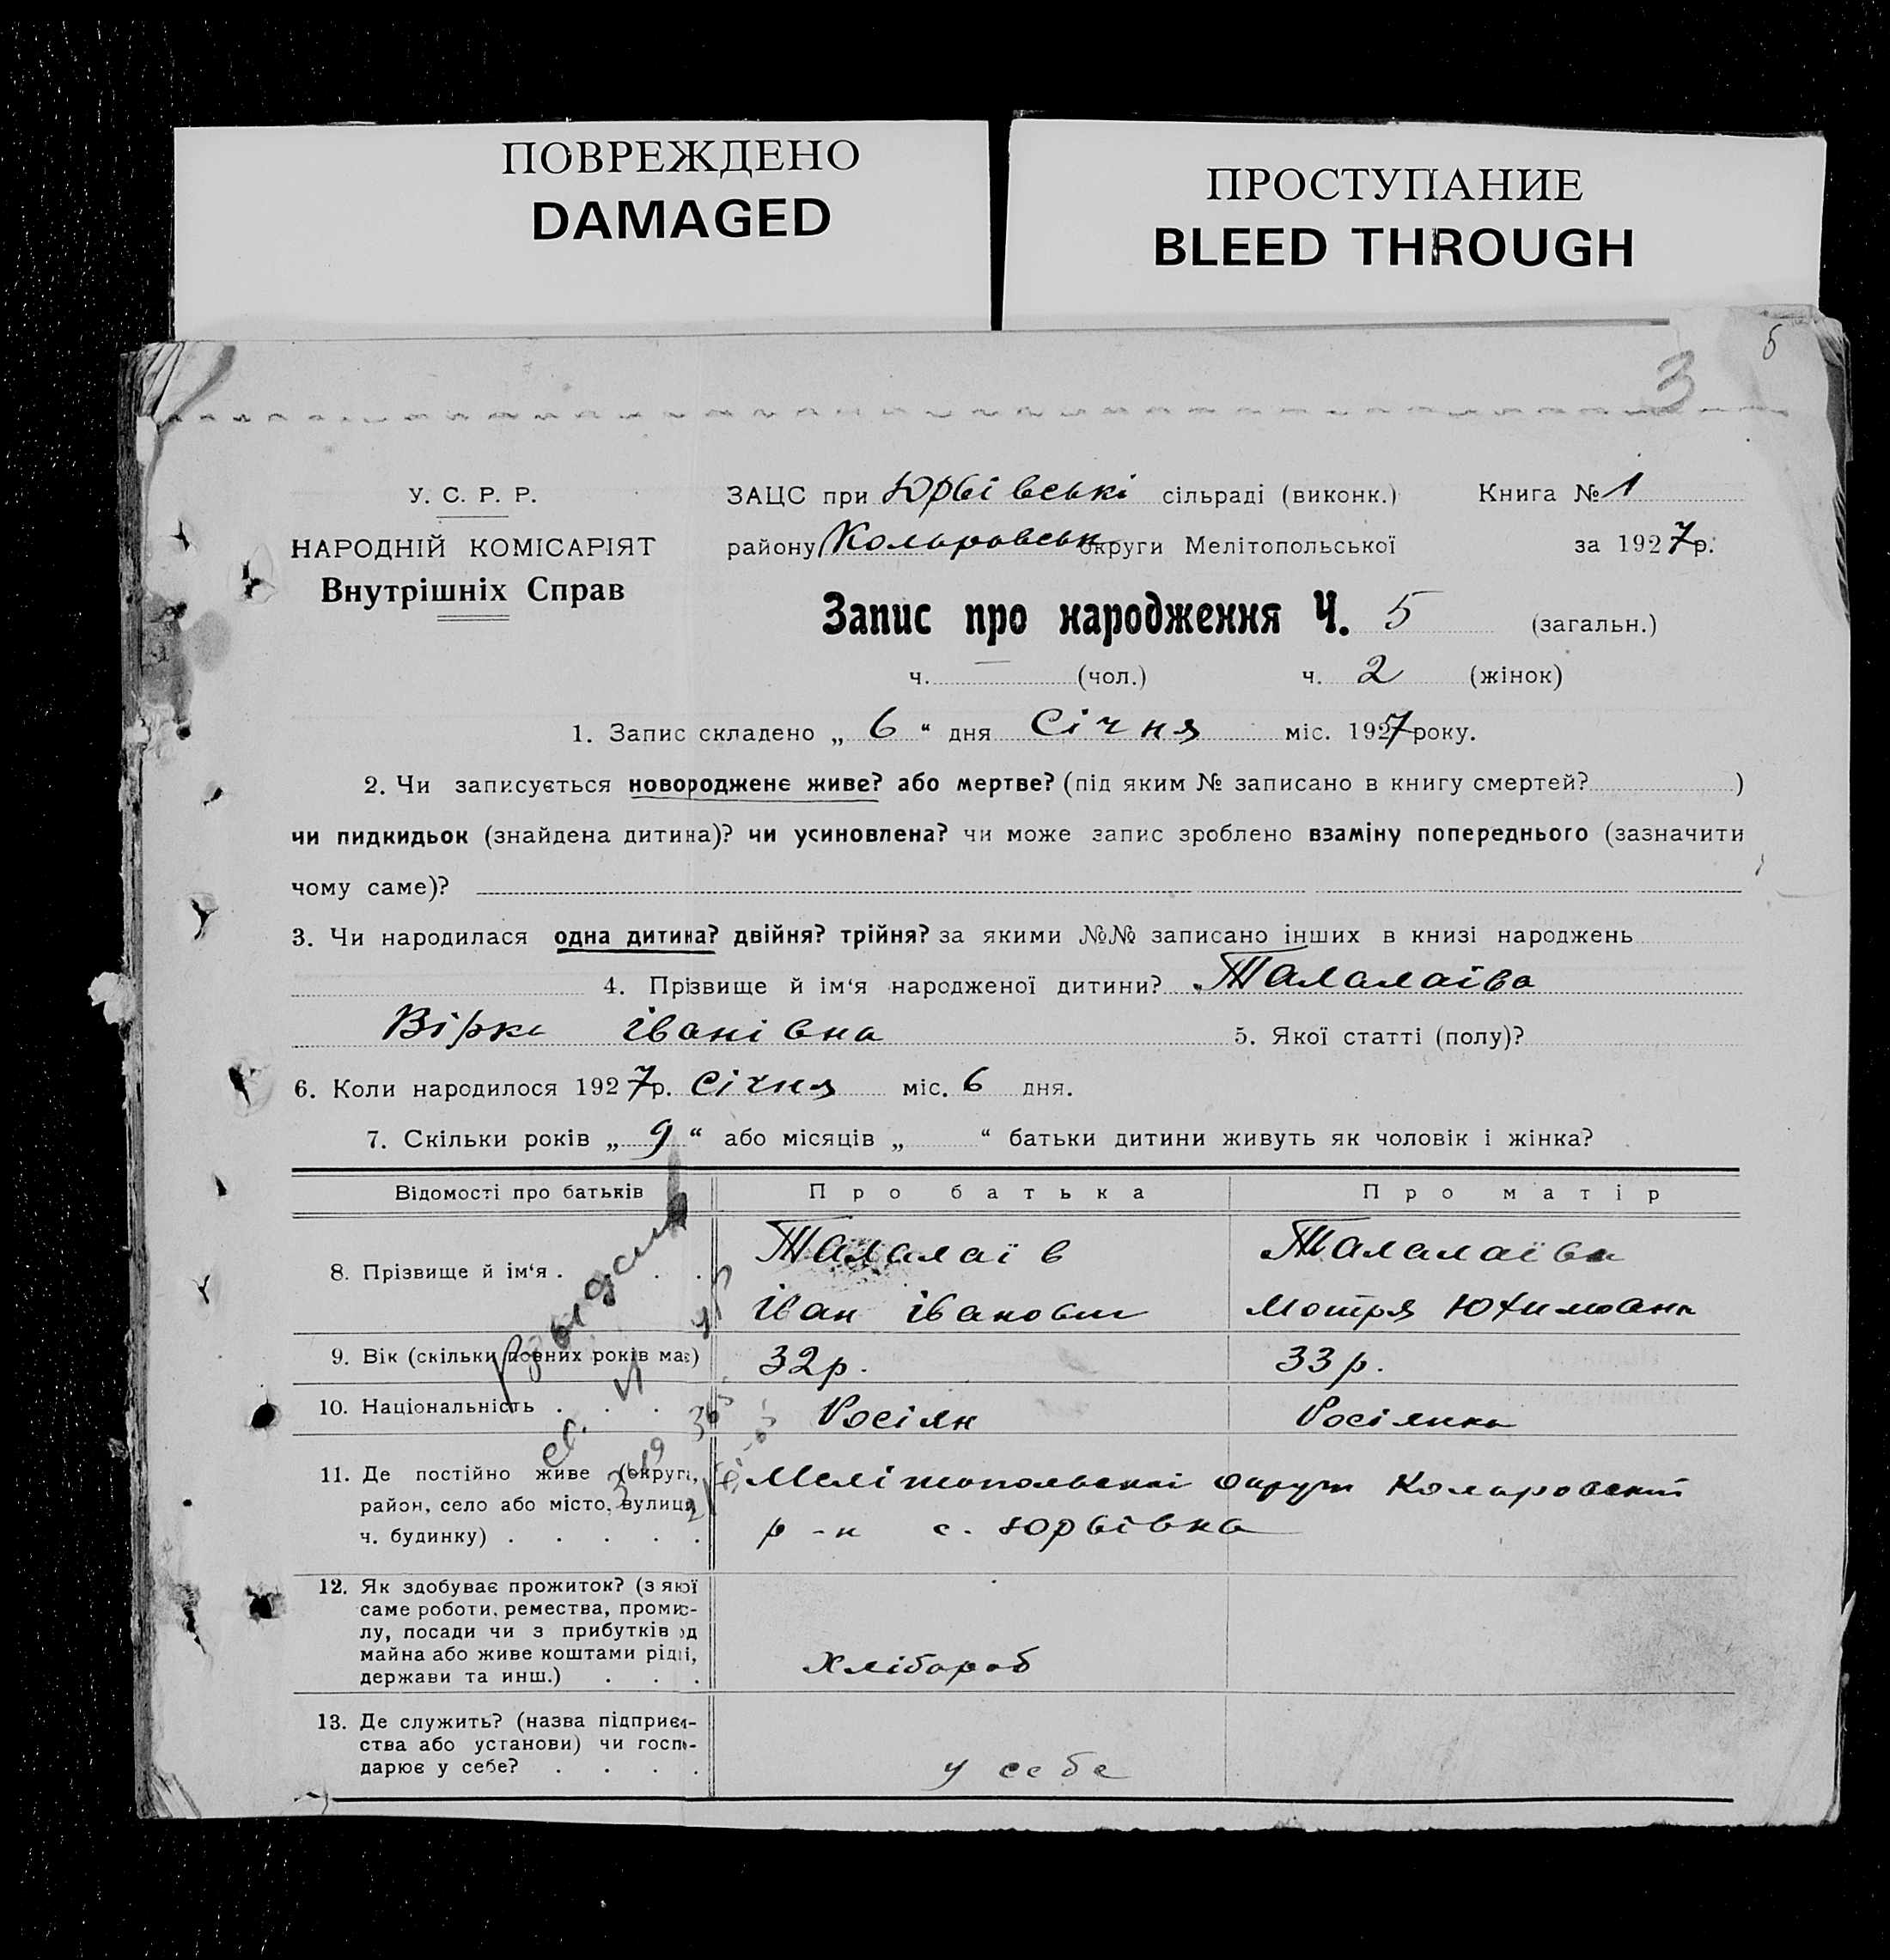 ПОВРЕЖДЕНО
DAMAGED
ПРОСТУПАНИЕ
BLEED THROUGH
5
3
У. С. Р. Р.
НАРОДНІЙ КОМІСАРІЯТ
Внутрішніх Справ
ЗАЦС при Юрьївські сільраді (виконк.) Книга № 1
району Коларовськ округи Мелітопольської за 1927 р.
Запис про народження Ч. 5 (загальн.)
ч. — (чол.) ч. 2 (жінок)
1. Запис складено „ 6 “ дня Січня міс. 1927 року.
2. Чи записується новороджене живе? або мертве? (під яким № записано в книгу смертей? )
чи пидкидьок (знайдена дитина)? чи усиновлена? чи може запис зроблено взаміну попереднього (зазначити
чому саме)?
3. Чи народилася одна дитина? двійня? трійня? за якими №№ записано інших в книзі народжень
4. Прізвище й ім‘я народженої дитини? Талалаїва
Вірка Іванівна 5. Якої статті (полу)?
6. Коли народилося 1927 р. Січня міс. 6 дня.
7. Скільки років „ 9 “ або місяців „ “ батьки дитини живуть як чоловік і жінка?
Відомості про батьків Про батька Про матір
8. Прізвище й ім‘я . . . Талалаїв Талалаїва
Іван Іванович Мотря Юхимовна
9. Вік (скільки повних років має) 32 р. 33 р.
10. Національність . . . Росіян Росіянка
11. Де постійно живе (округа, район, село або місто, вулиця, ч. будинку) . . . . .
Мелітопольскі округи Коларовский
р-н с. Юрьівка
12. Як здобуває прожиток? (з якої
саме роботи, ремества, промис-
лу, посади чи з прибутків од
майна або живе коштами рідні,
держави та инш.) . . .
Хлібороб
13. Де служить? (назва підприєм-
ства або установи) чи госпо-
дарює у себе? . . . .
у себе